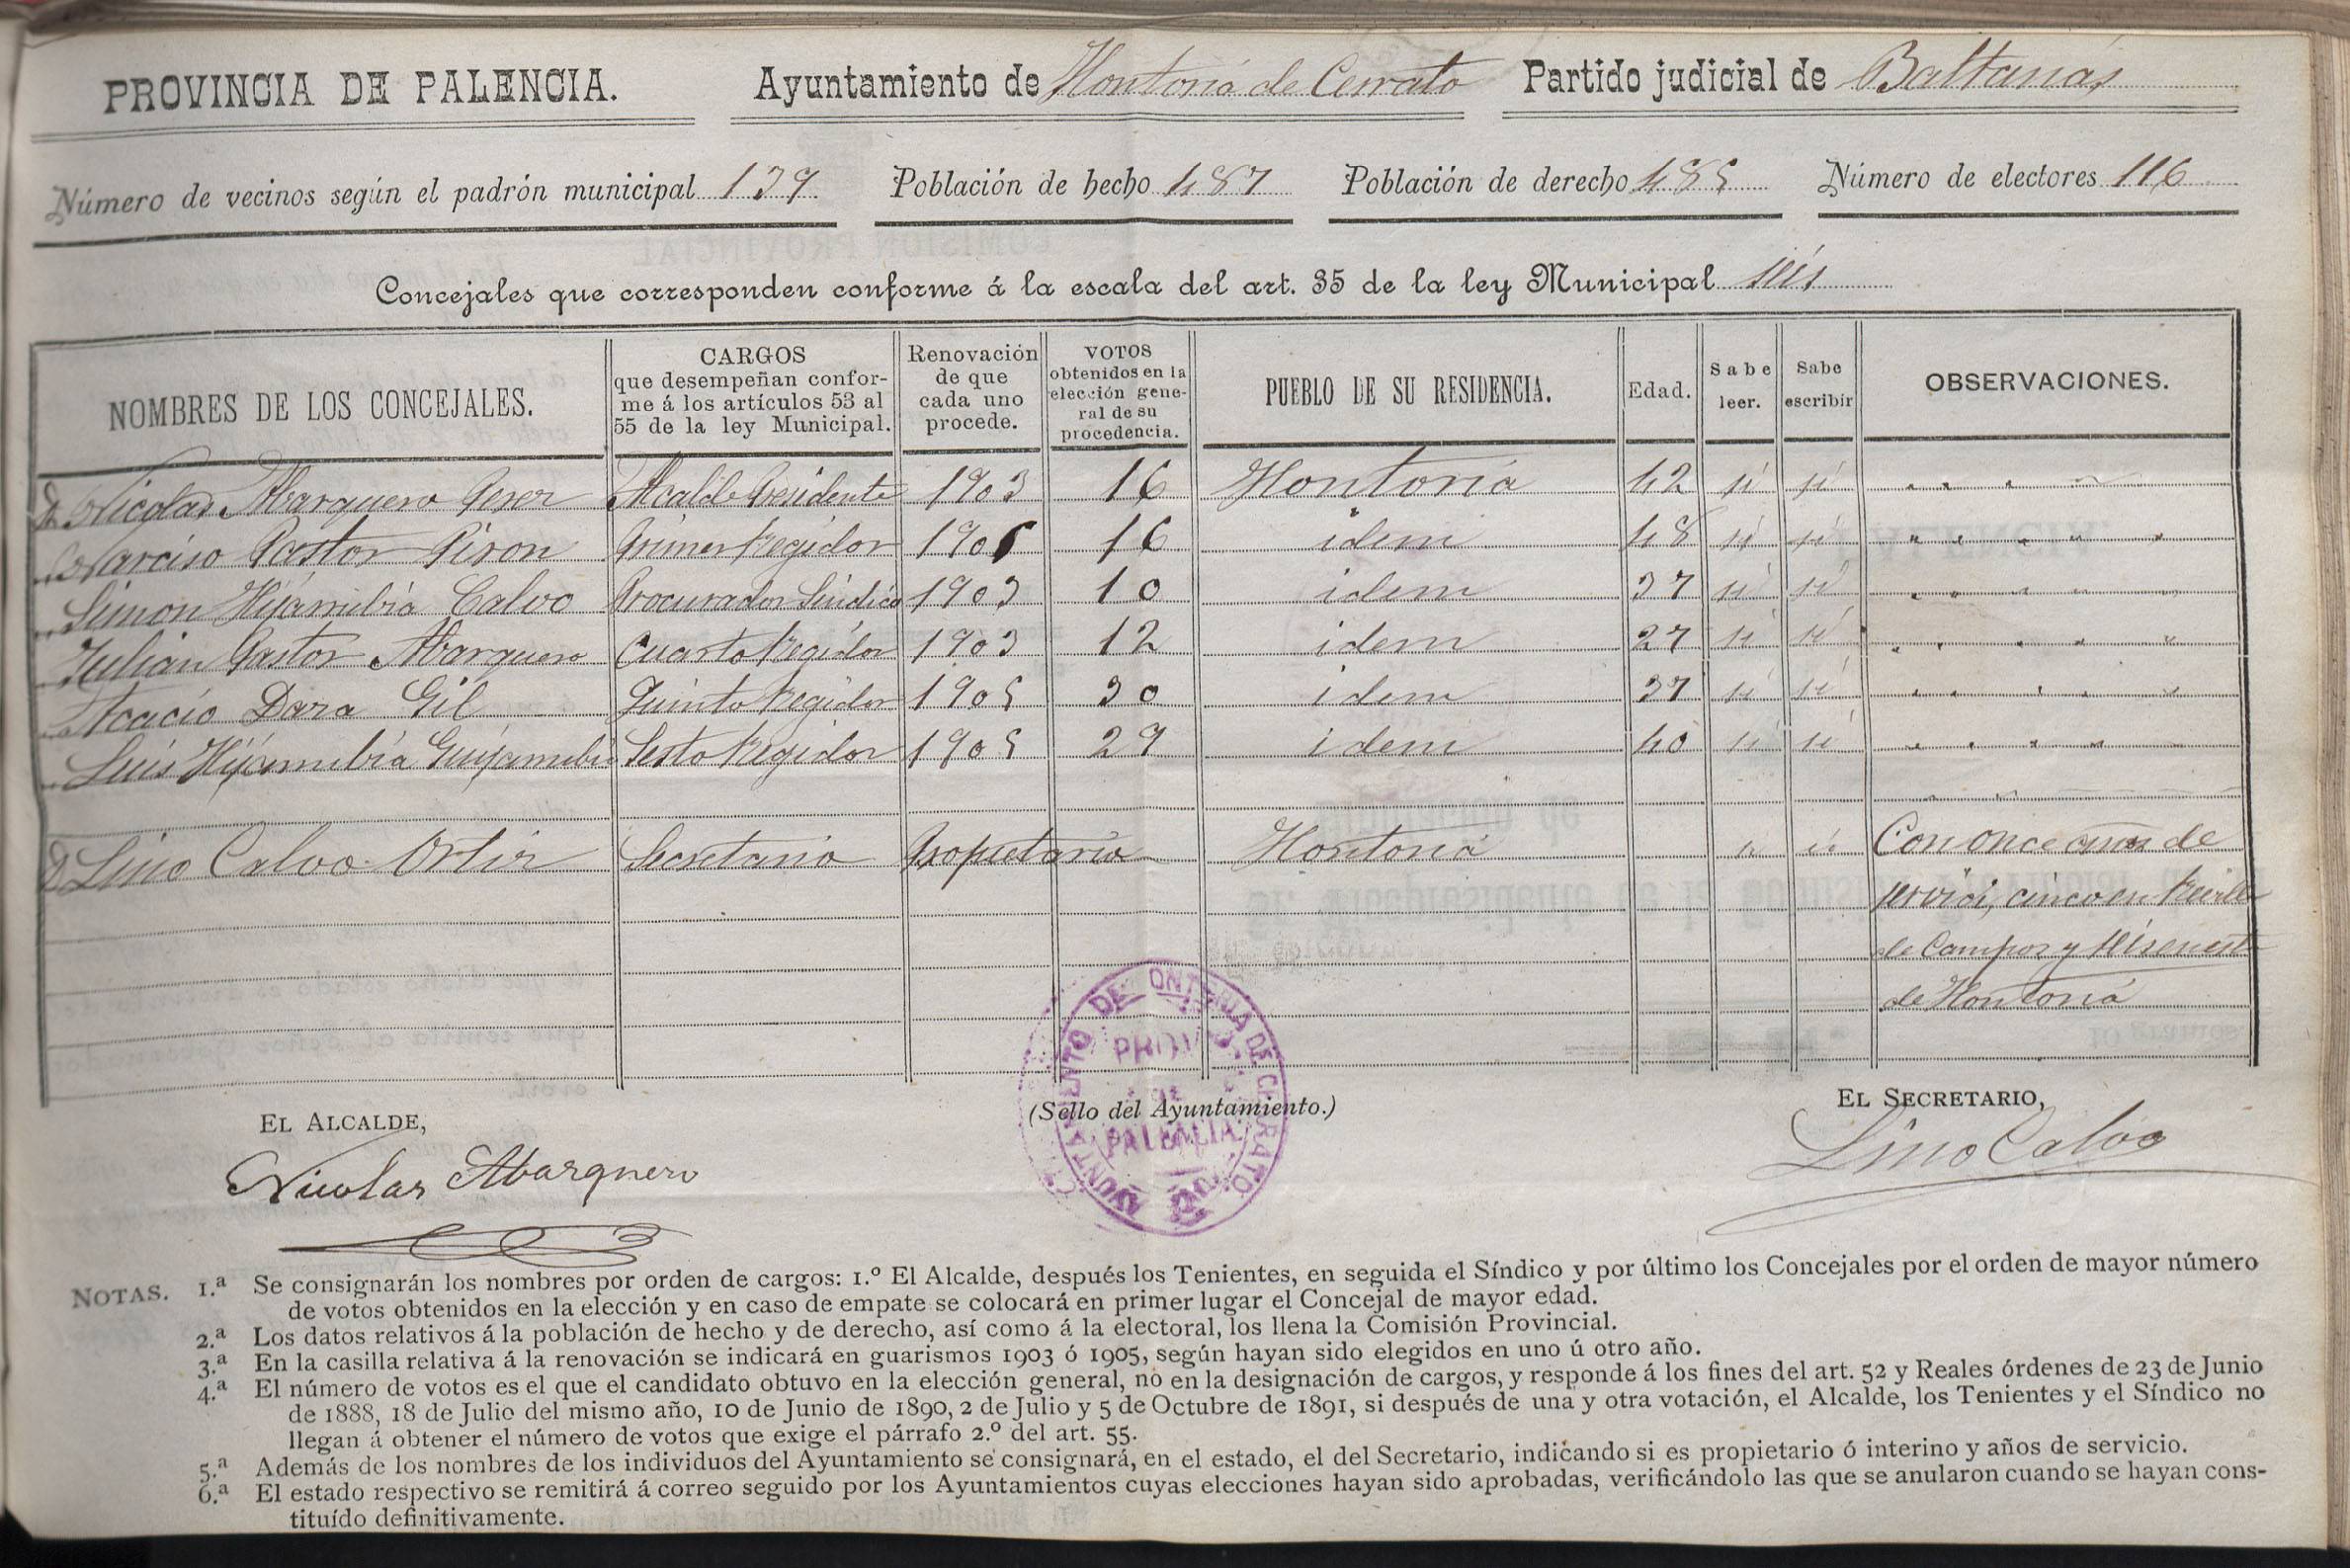 PROVINCIA DE PALENCIA. Ayuntamiento de Hontoria de Cerrato Partido judicial de Baltanás
Número de vecinos según el padrón municipal 139 Población de hecho 487 Población de derecho 485 Número de electores 116
Concejales que corresponden conforme á la escala del art. 35 de la ley Municipal seis
NOMBRES DE LOS CONCEJALES.
CARGOS
que desempeñan confor-
me á los artículos 53 al
55 de la ley Municipal.
Renovación
de que
cada uno
procede.
VOTOS
obtenidos en la
elección gene-
ral de su
procedencia.
PUEBLO DE SU RESIDENCIA.
Edad.
Sabe
leer.
Sabe
escribir
OBSERVACIONES.
D. Nicolas Abarquero Perez Alcalde Presidente 1903 16 Hontoria 42 si si " " " "
" Narciso Pastor Piron Primer Regidor 1905 16 idem 48 si si " " " " "
" Simon Hijarrubia Calvo Procurador Sindico 1903 10 idem 37 si si " " " " "
" Julian Pastor Abarquero Cuarto Regidor 1903 12 idem 27 si si " " " " "
" Acacio Dara Gil Quinto Regidor 1905 30 idem 37 si si " " " " "
" Luis Hijarrubia Guijarrubia Sesto Regidor 1905 29 idem 40 si si " " " "
D. Lino Calvo Ortiz Secretario Propietario Hontoria si si Con once años de
servici, cinco en
de Campos y seis en est
de Hontoria
EL ALCALDE,
Nicolas Abarquero
(Sello del Ayuntamiento.)
AYUNTAMIENTO DE ONTORIA DE CERRATO
PROVA
DE
PALENCIA
EL SECRETARIO,
Lino Calvo
NOTAS. 1.ª Se consignarán los nombres por orden de cargos: 1.º El Alcalde, después los Tenientes, en seguida el Síndico y por último los Concejales por el orden de mayor número
de votos obtenidos en la elección y en caso de empate se colocará en primer lugar el Concejal de mayor edad.
2.ª Los datos relativos á la población de hecho y de derecho, así como á la electoral, los llena la Comisión Provincial.
3.ª En la casilla relativa á la renovación se indicará en guarismos 1903 ó 1905, según hayan sido elegidos en uno ú otro año.
4.ª El número de votos es el que el candidato obtuvo en la elección general, no en la designación de cargos, y responde á los fines del art. 52 y Reales órdenes de 23 de Junio
de 1888, 18 de Julio del mismo año, 10 de Junio de 1890, 2 de Julio y 5 de Octubre de 1891, si después de una y otra votación, el Alcalde, los Tenientes y el Síndico no
llegan á obtener el número de votos que exige el párrafo 2.º del art. 55.
5.ª Además de los nombres de los individuos del Ayuntamiento se consignará, en el estado, el del Secretario, indicando si es propietario ó interino y años de servicio.
6.ª El estado respectivo se remitirá á correo seguido por los Ayuntamientos cuyas elecciones hayan sido aprobadas, verificándolo las que se anularon cuando se hayan cons-
tituído definitivamente.